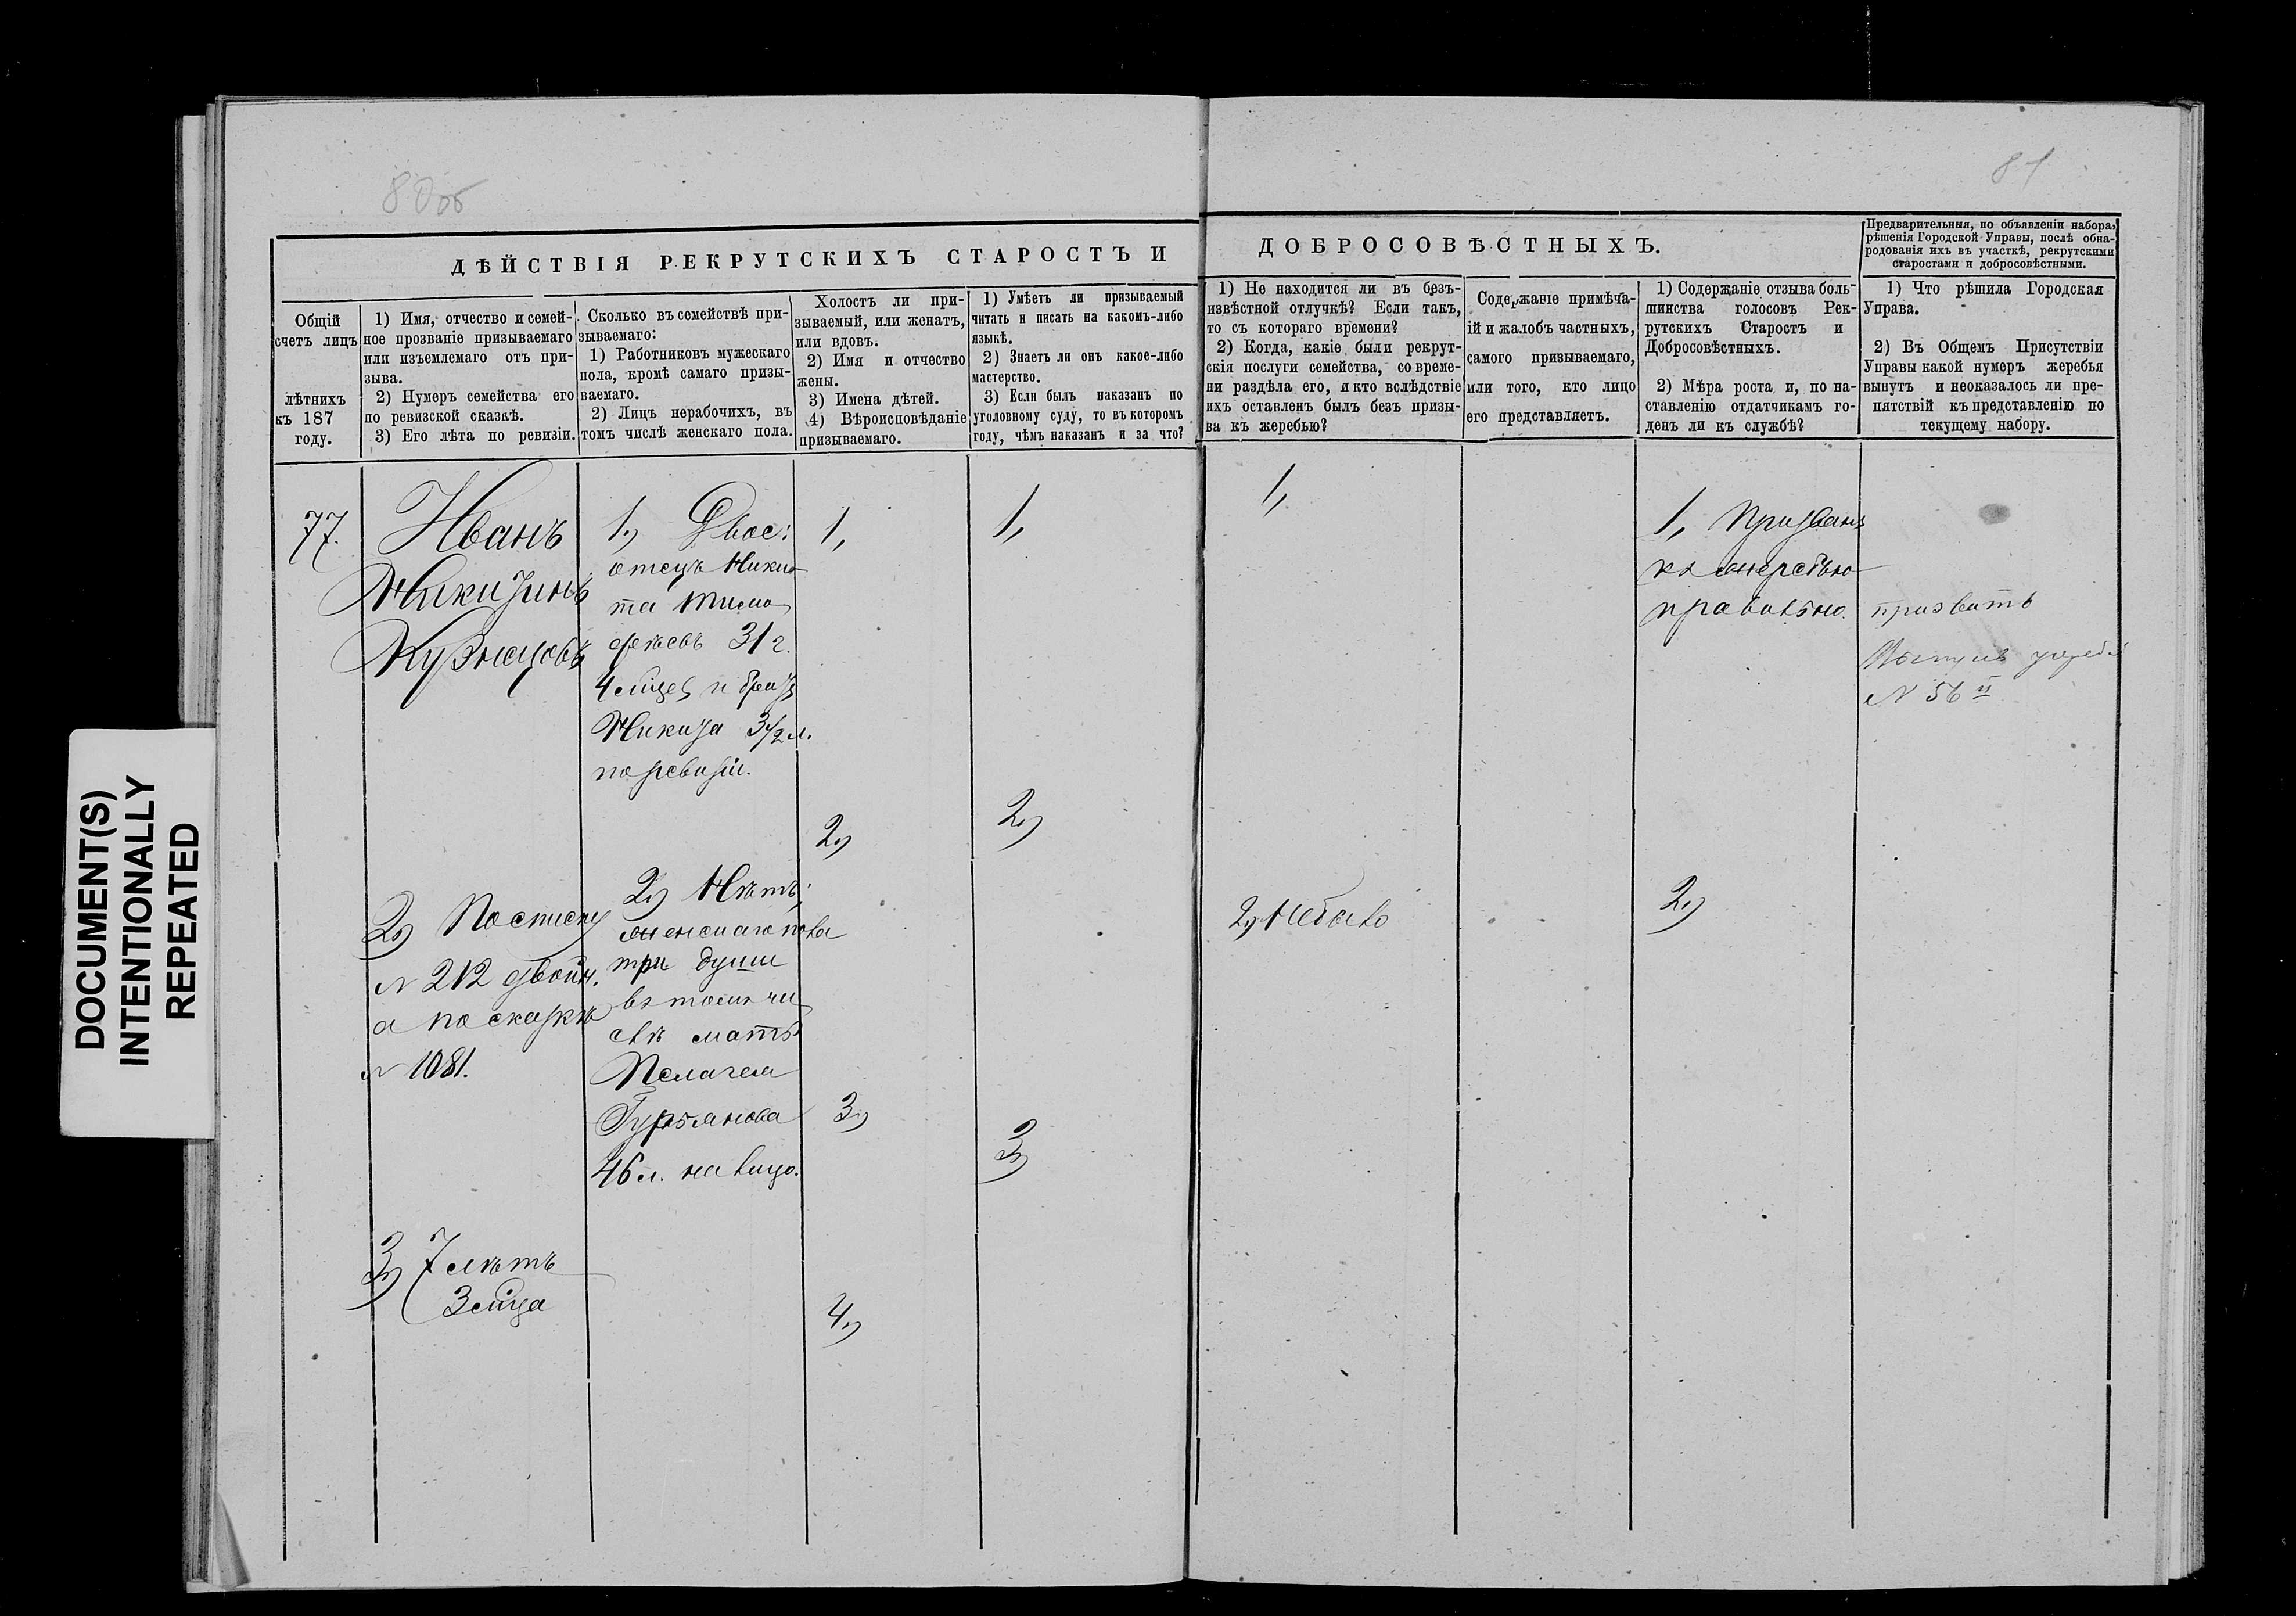 80об
81
ДѢЙСТВІЯ РЕКРУТСКИХЪ СТАРОСТЪ И
ДОБРОСОВѢСТНЫХЪ.
Предварительныя, по объявленіи набора,
рѣшенія Городской Управы, послѣ обна-
родованія ихъ въ участкѣ, рекрутскими
старостами и добросовѣстными.
Общій
счетъ лицъ
лѣтнихъ
къ 187
году.
1) Имя, отчество и семей-
ное прозваніе призываемаго
или изъемлемаго отъ при-
зыва.
2) Нумеръ семейства его
по ревизской сказкѣ.
3) Его лѣта по ревизіи.
Сколько въ семействѣ при-
зываемаго:
1) Работниковъ мужескаго
пола, кромѣ самаго призы-
ваемаго.
2) Лицъ нерабочихъ, въ
томъ числѣ женскаго пола.
Холостъ ли при-
зываемый, или женатъ,
или вдовъ.
2) Имя и отчество
жены.
3) Имена дѣтей.
4) Вѣроисповѣданіе
призываемаго.
1) Умѣетъ ли призываемый
читать и писать на какомъ-либо
языкѣ.
2) Знаетъ ли онъ какое-либо
мастерство.
3) Если былъ наказанъ по
уголовному суду, то въ которомъ
году, чѣмъ наказанъ и за что?
1) Не находится ли въ безъ-
извѣстной отлучкѣ? Если такъ,
то съ котораго времени?
2) Когда, какіе были рекрут-
скія послуги семейства, со време-
ни раздѣла его, и кто вслѣдствіе
ихъ оставленъ былъ безъ призы-
ва къ жеребью?
Содержаніе примѣча-
ій и жалобъ частныхъ,
самого призываемаго,
или того, кто лицо
его представляетъ.
1) Содержаніе отзыва боль-
шинства голосовъ Рек-
рутскихъ Старостъ и
Добросовѣстныхъ.
2) Мѣра роста и, по на-
ставленію отдатчикамъ го-
денъ ли къ службѣ?
1) Что рѣшила Городская
Управа.
2) Въ Общемъ Присутствіи
Управы какой нумеръ жеребья
вынутъ и неоказалось ли пре-
пятствій къ представленію по
текущему набору.
77.
Иванъ
Никитинъ
Кузнецовъ
2) По списку
N 212 двойн.
а по сказкѣ
N 1081.
3) 7 лѣтъ
3 мѣца
1) Двое:
отецъ Ники
та Тимо
феевъ 31 г.
4 мѣцев и братъ
Никита 3½ л.
по ревизіи.
2) Нѣтъ;
женскаго пола
три души
въ томъ чи
слѣ мать
Пелагея
Гурьянова
46 л. на лицо.
1,
2)
3)
4)
1,
2)
3)
1,
2) Небыло
1, Призванъ
къ жеребью
правильно.
2)
призвать
Вынулъ жребій
N 56й
DOCUMENT(S)
INTENTIONALLY
REPEATED